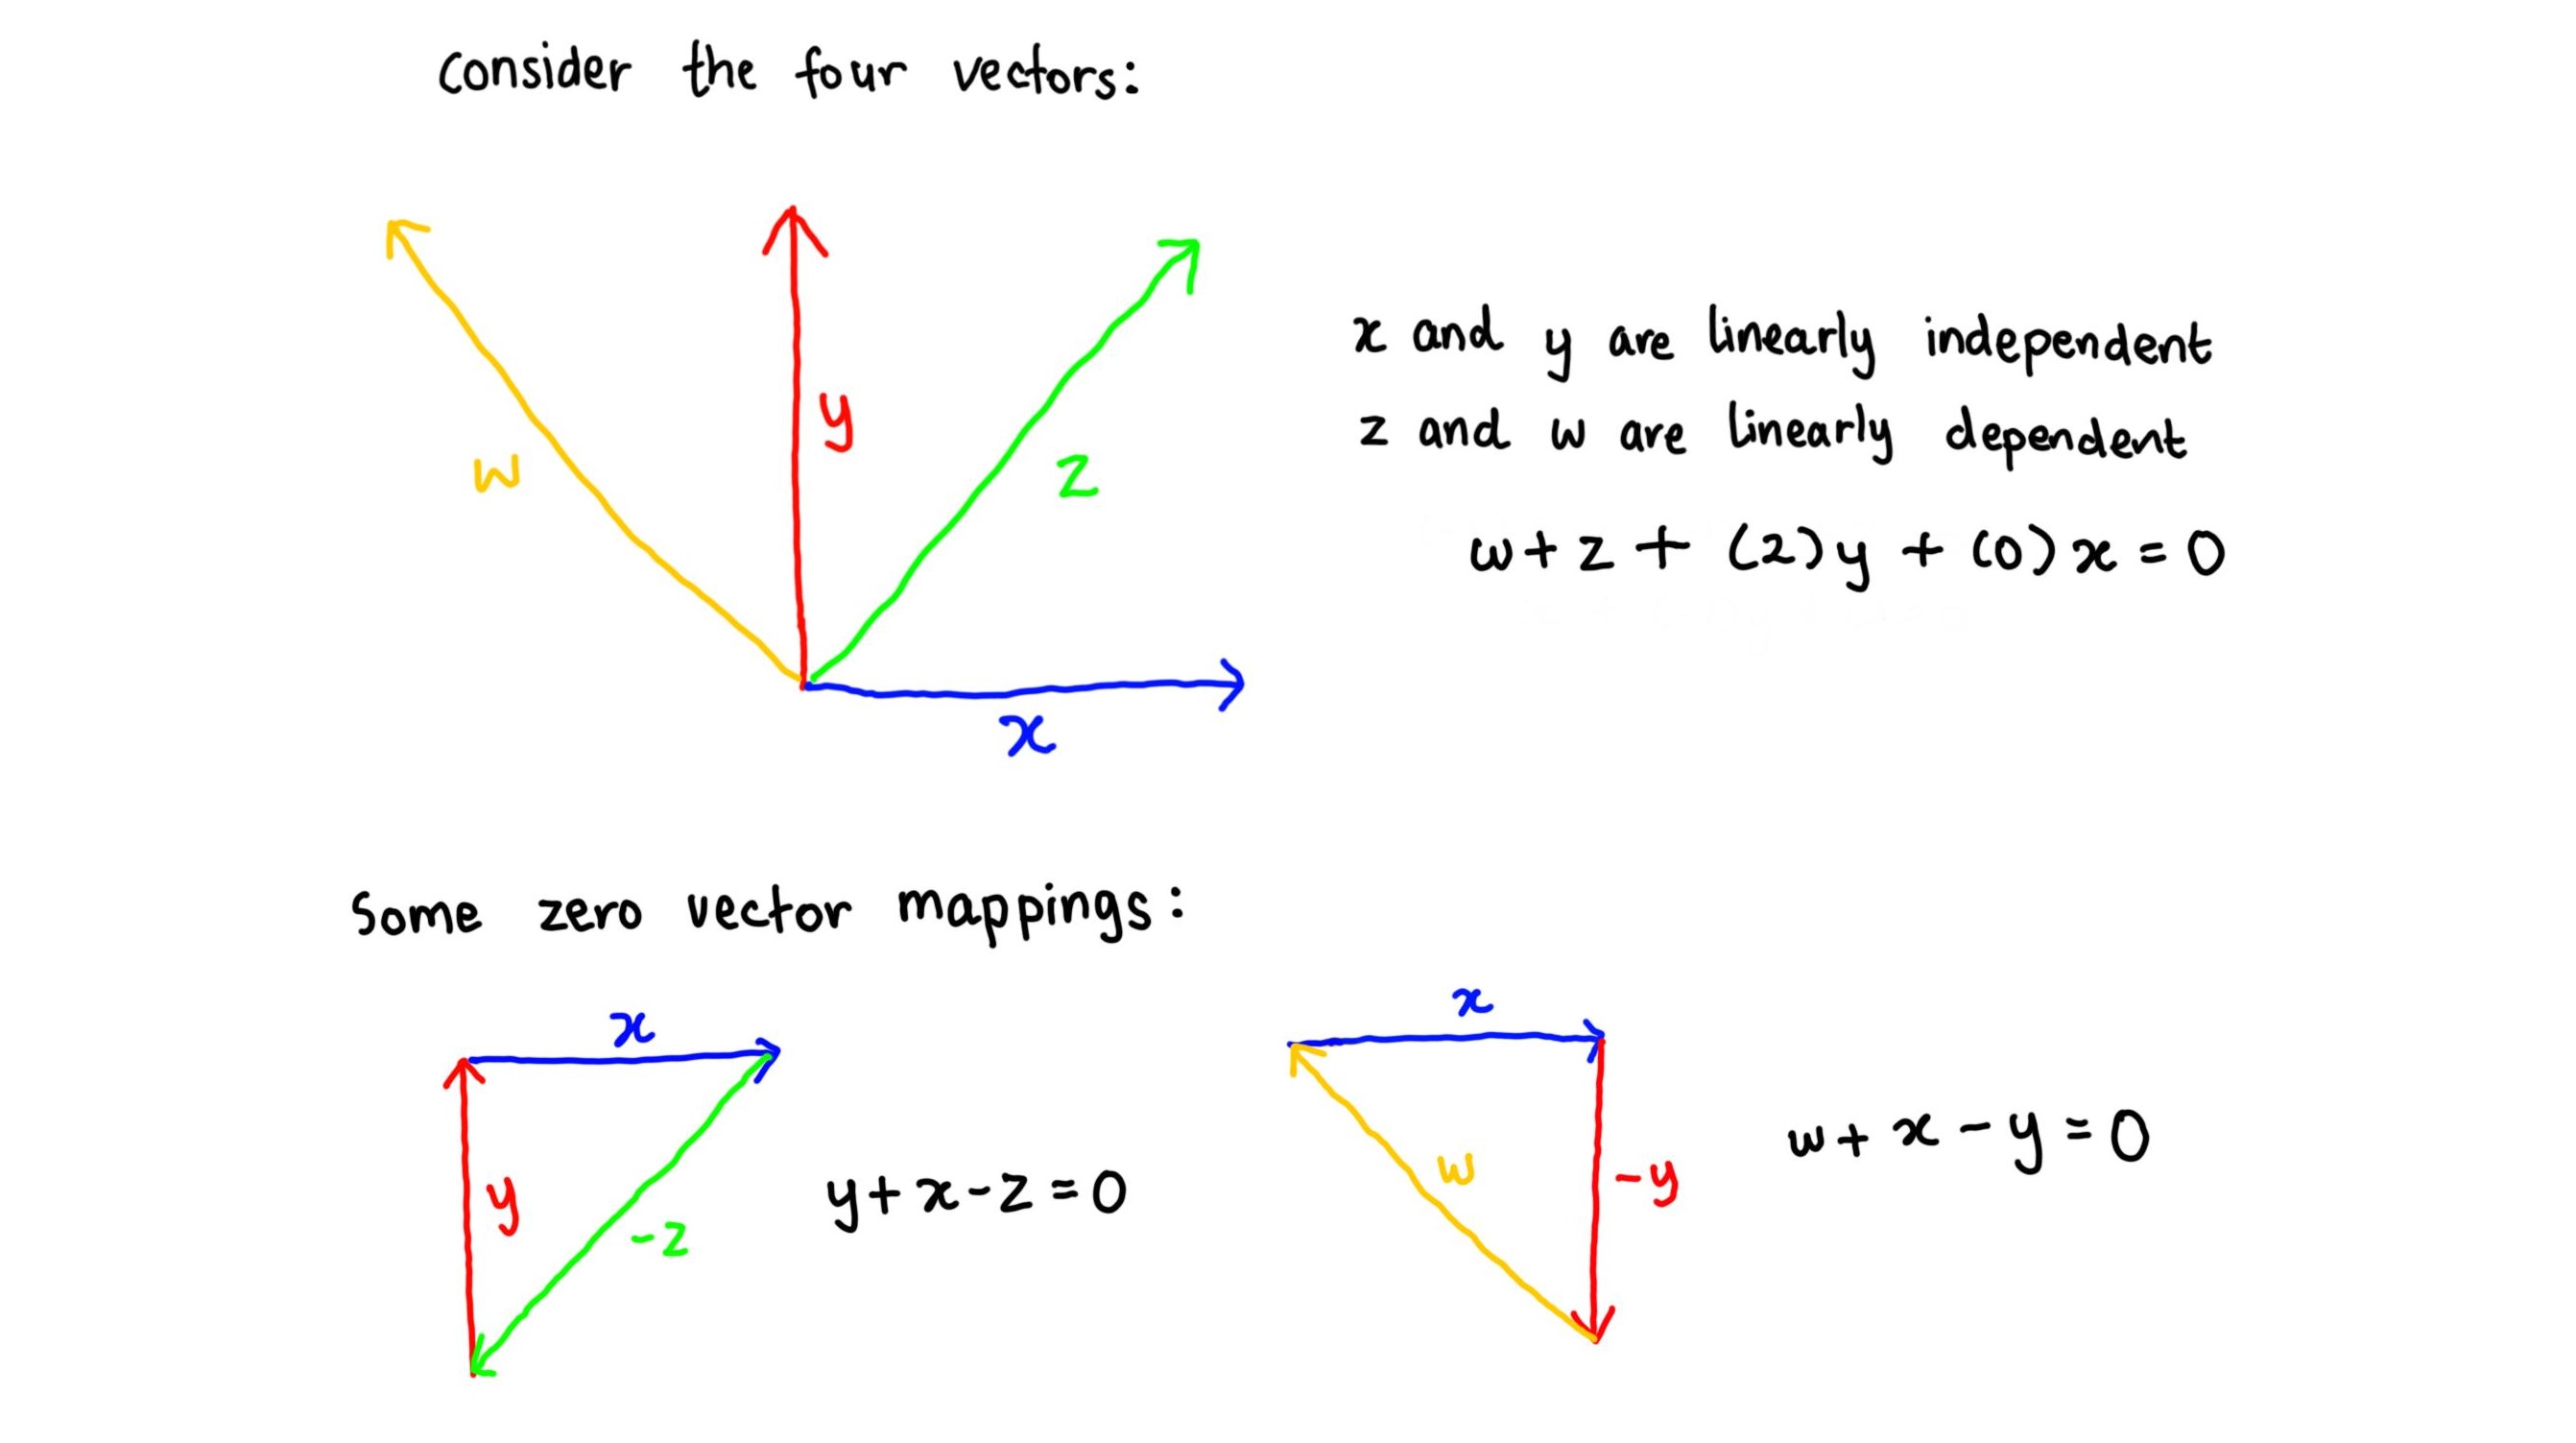 consider the four vectors:
w
y
z
x
x and y are linearly independent
z and w are linearly dependent
w + z + (2)y + (0)x = 0
Some zero vector mappings:
x
y
-z
y + x - z = 0
x
w
-y
w + x - y = 0